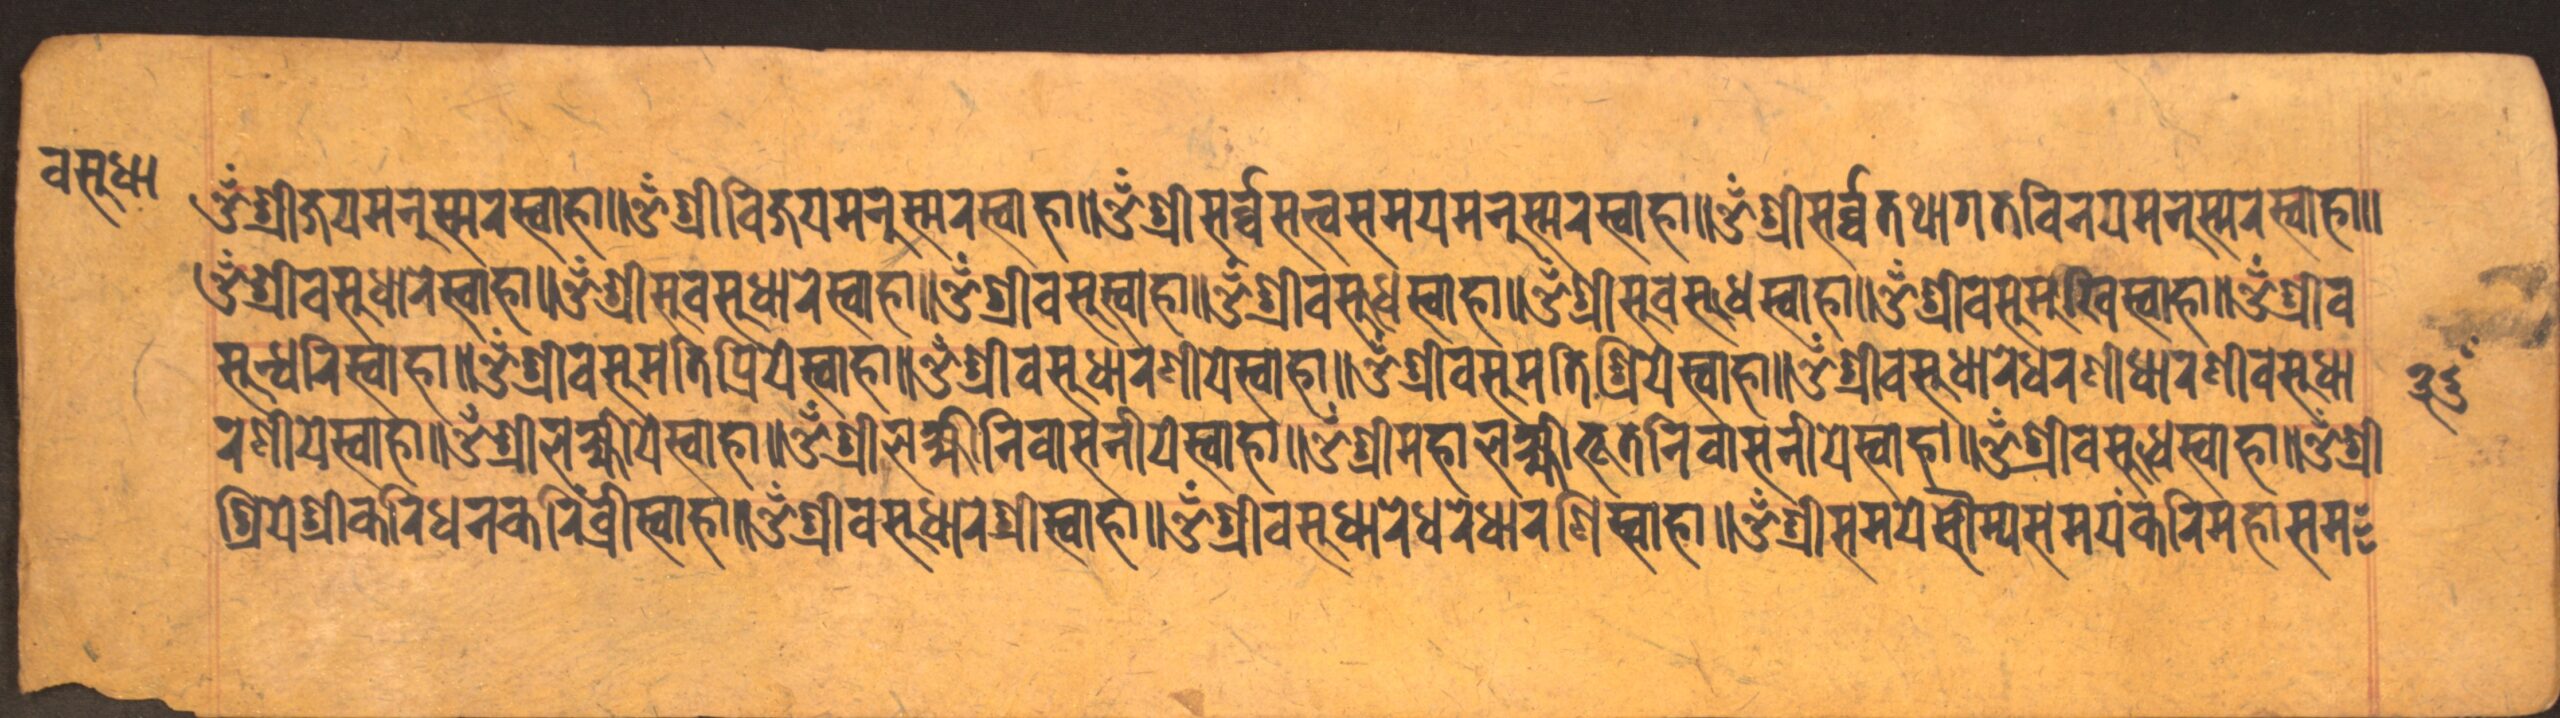 वसुधा
ॐ श्रीजयमनुस्मरस्वाहा॥ ॐ श्रीविजयमनुस्मरस्वाहा॥ ॐ श्रीसर्व्वसत्त्वसमयमनुस्मरस्वाहा॥ ॐ श्रीसर्व्वतथागतविनयमनुस्मरस्वाहा॥
ॐ श्रीवसुधारेस्वाहा॥ ॐ श्रीसुवसुधारेस्वाहा॥ ॐ श्रीवसुस्वाहा॥ ॐ श्रीवसुधेस्वाहा॥ ॐ श्रीसुवसुधेस्वाहा॥ ॐ श्रीवसुमुखिस्वाहा॥ ॐ श्रीव
सुन्धरिस्वाहा॥ ॐ श्रीवसुमतिप्रियेस्वाहा॥ ॐ श्रीवसुधारणीयेस्वाहा॥ ॐ श्रीवसुमतिश्रियेस्वाहा॥ ॐ श्रीवसुधारेधरणीधारणीवसुधा
रणीयेस्वाहा॥ ॐ श्रीलक्ष्मीयेस्वाहा॥ ॐ श्रीलक्ष्मीनिवासनीयेस्वाहा॥ ॐ श्रीमहालक्ष्मीभूतनिवासनीयेस्वाहा॥ ॐ श्रीवसुधेस्वाहा॥ ॐ श्री
श्रियेश्रीकरिधनकरिंव्रीस्वाहा॥ ॐ श्रीवसुधारेश्रीस्वाहा॥ ॐ श्रीवसुधारेधरेधारणिस्वाहा॥ ॐ श्रीसमयेसौम्यसमयंकरिमहासम